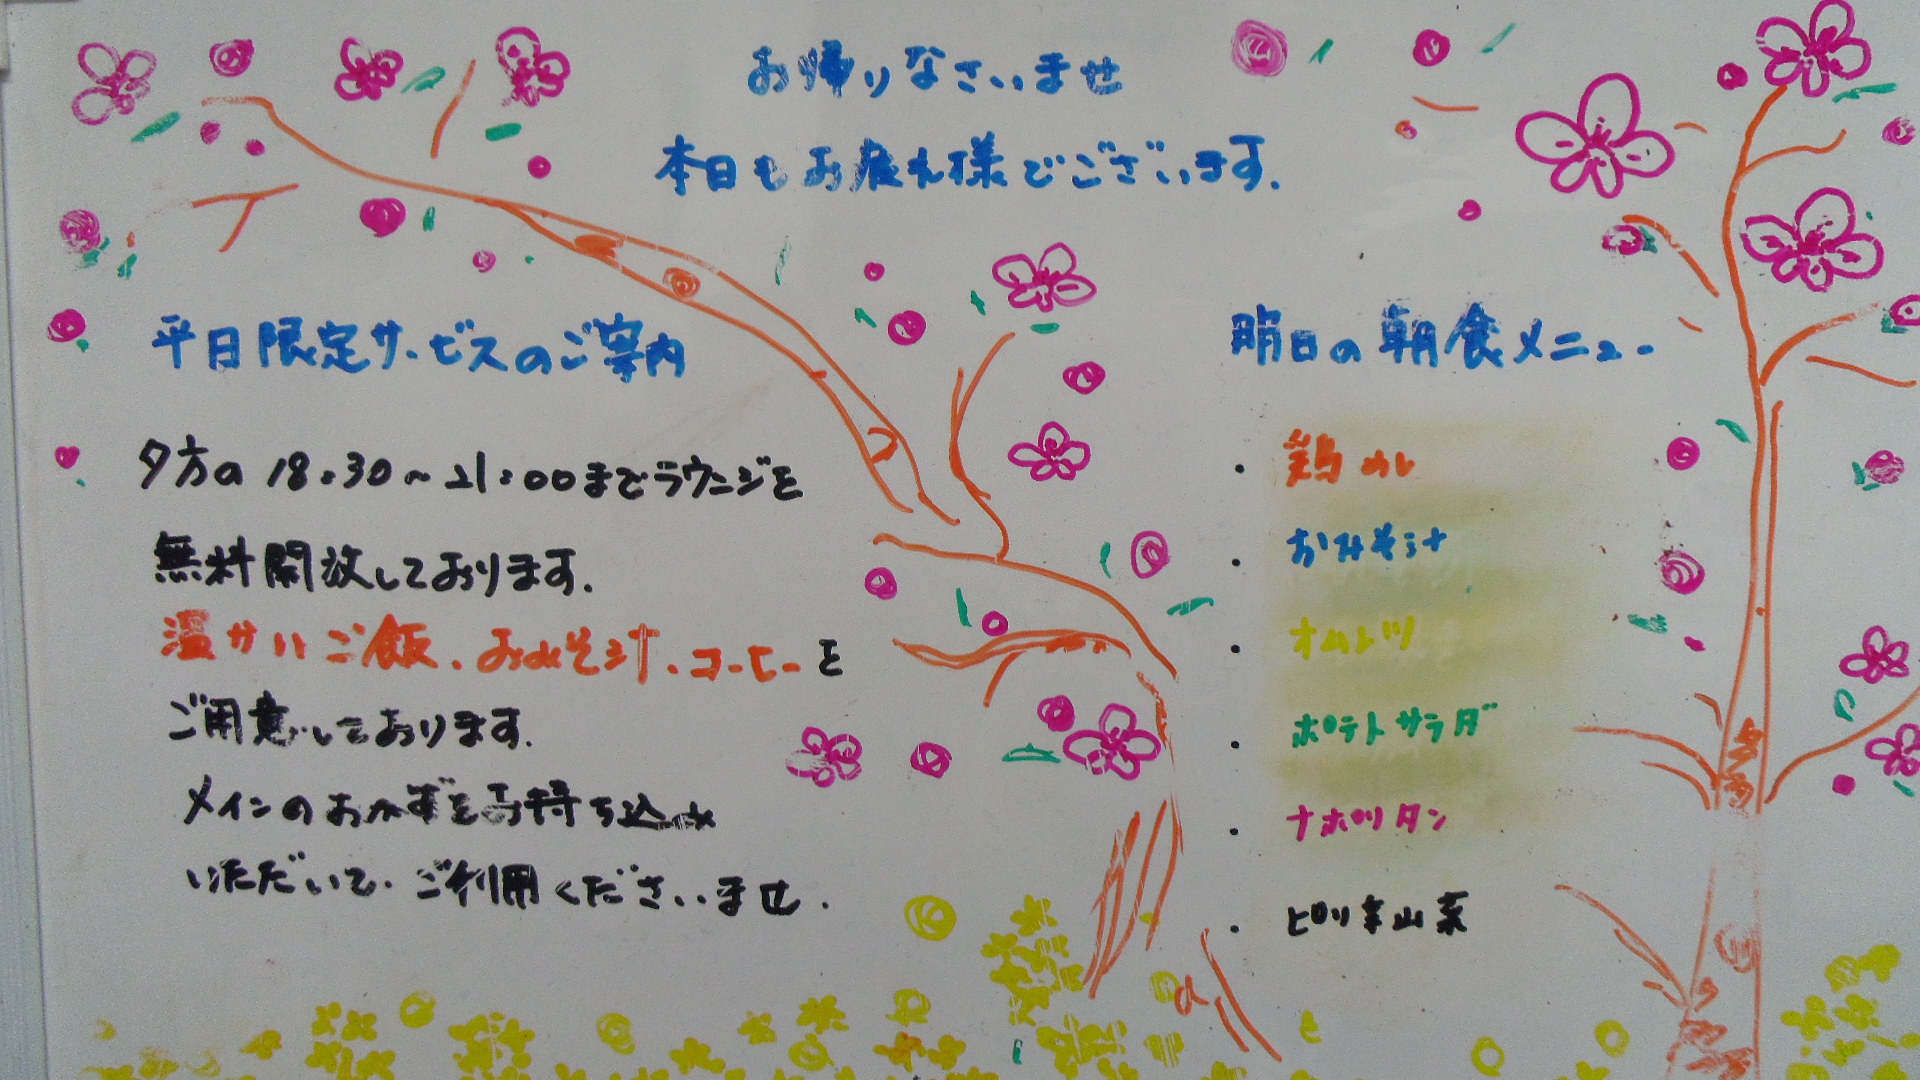 お帰りなさいませ
本日もお疲れ様でございます.
平日限定サービスのご案内
夕方の18:30~21:00までラウンジを
無料開放しております.
温かいご飯、おみそ汁、コーヒーを
ご用意しております.
メインのおかずをお持ち込み
いただいて、ご利用くださいませ.
明日の朝食メニュー
・鶏めし
・おみそ汁
・オムレツ
・ポテトサラダ
・ナポリタン
・ピリ辛山菜